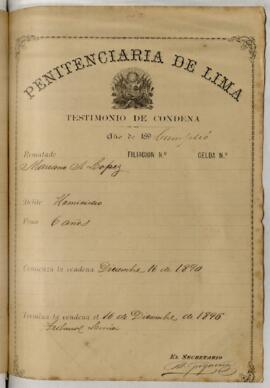 PENITENCIARIA DE LIMA
TESTIMONIO DE CONDENA
Año de 189 Cumplió
Rematado FILIACION N.° CELDA N.°
Mariano A Lopez
Delito Homicidio
Pena 6 años
Comienza la condena Diciembre 16 de 1890
Termina la condena el 16 de Diciembre de 1896
Tribunal
EL SECRETARIO